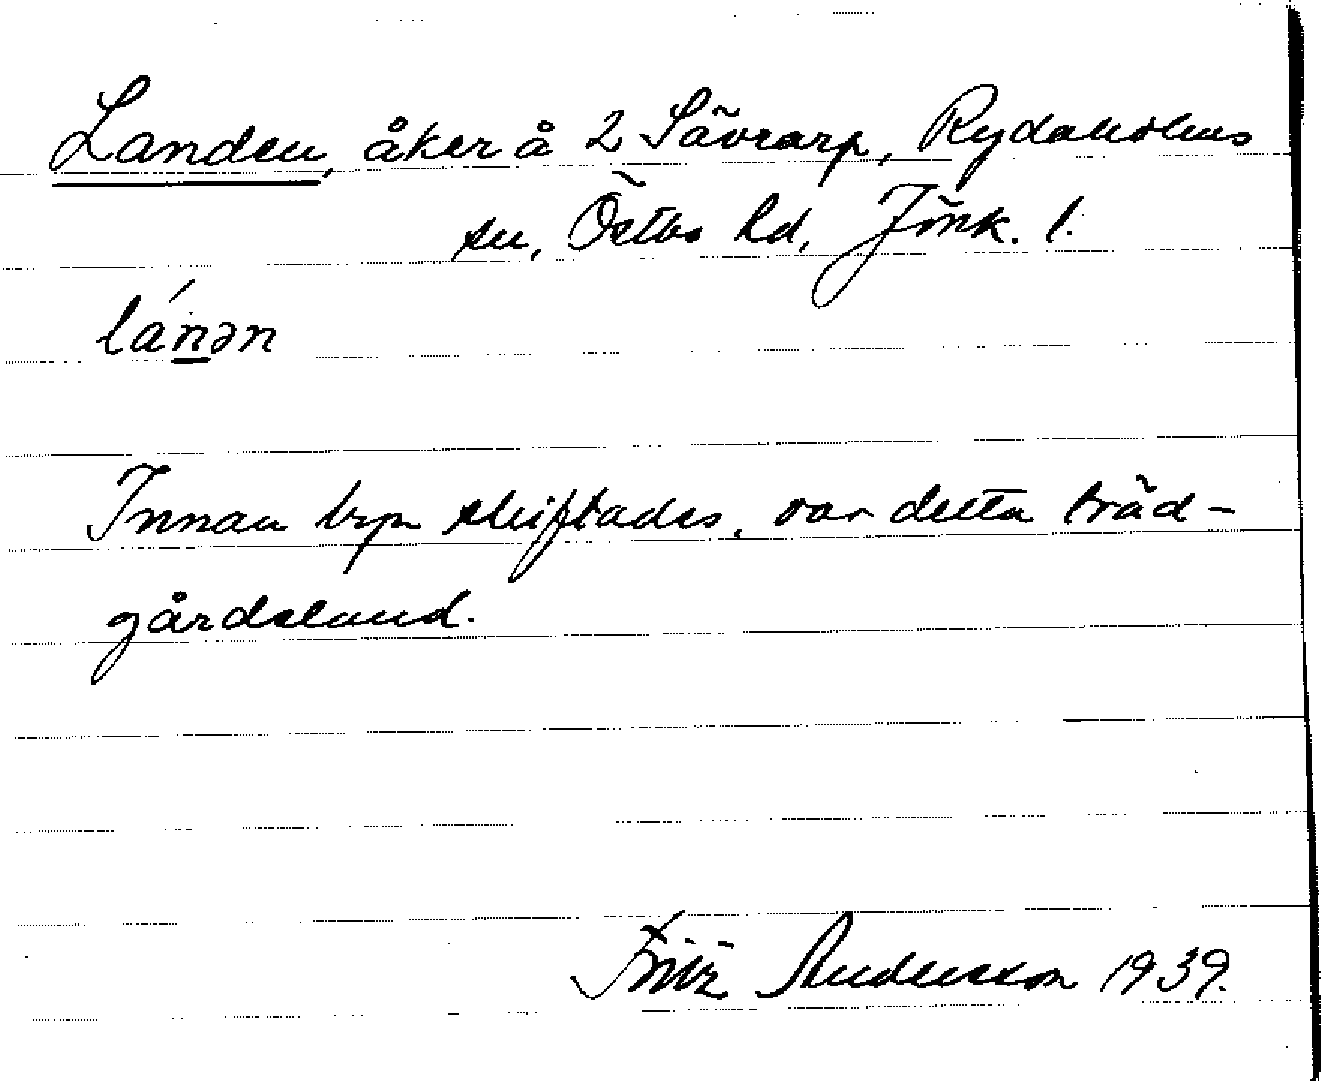 Landen, åker å 2 Sävrarp, Rydaholms
sn, Östbo hd, Jönk. l.
lánən
Innan byn skiftades, var detta träd-
gårdsland.
Fritz Andersson 1939.